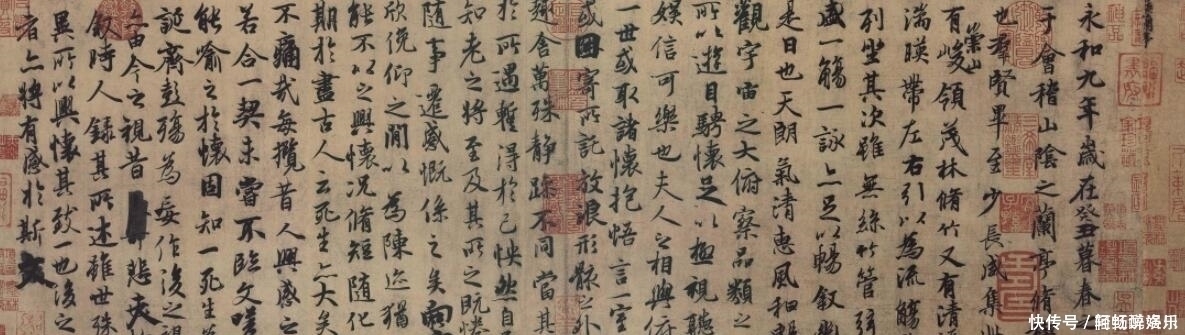 永和九年歲在癸丑暮春
于會稽山陰之蘭亭脩
也群賢畢至少長咸集
有崇山峻領茂林脩竹又有清
湍暎帶左右引以為流觴
列坐其次雖無絲竹管弦
盛一觴一詠亦足以暢敘幽
是日也天朗氣清惠風和暢
觀宇宙之大俯察品類之
所以遊目騁懷足以極視聽
娛信可樂也夫人之相與俯
一世或取諸懷抱悟言一室
或因寄所託放浪形骸之外
趣舍萬殊静躁不同當其
於所遇蹔得於己怏然自
知老之將至及其所之既惓
隨事遷感慨係之矣向
欣俛仰之閒以為陳迹猶
能不以之興懷況脩短隨化
期於盡古人云死生亦大矣
不痛哉每攬昔人興感之
若合一契未嘗不臨文嗟
能喻之於懷固知一死生為
誕齊彭殤為妄作後之視
亦由今之視昔悲夫
敘時人錄其所述雖世殊
異所以興懷其致一也後之
者亦將有感於斯文
快传号